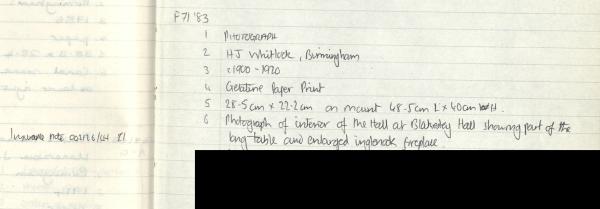 F71 '83
1 PHOTOGRAPH
2 HJ Whitlock, Birmingham
3 c1900 - 1920
4 Gelatine Paper Print
5 28.5cm x 22.2cm on mount 48.5cm L x 40cm H.
6 Photograph of interior of the Hall at Blakesley Hall showing part of the
long table and enlarged inglenook fireplace.